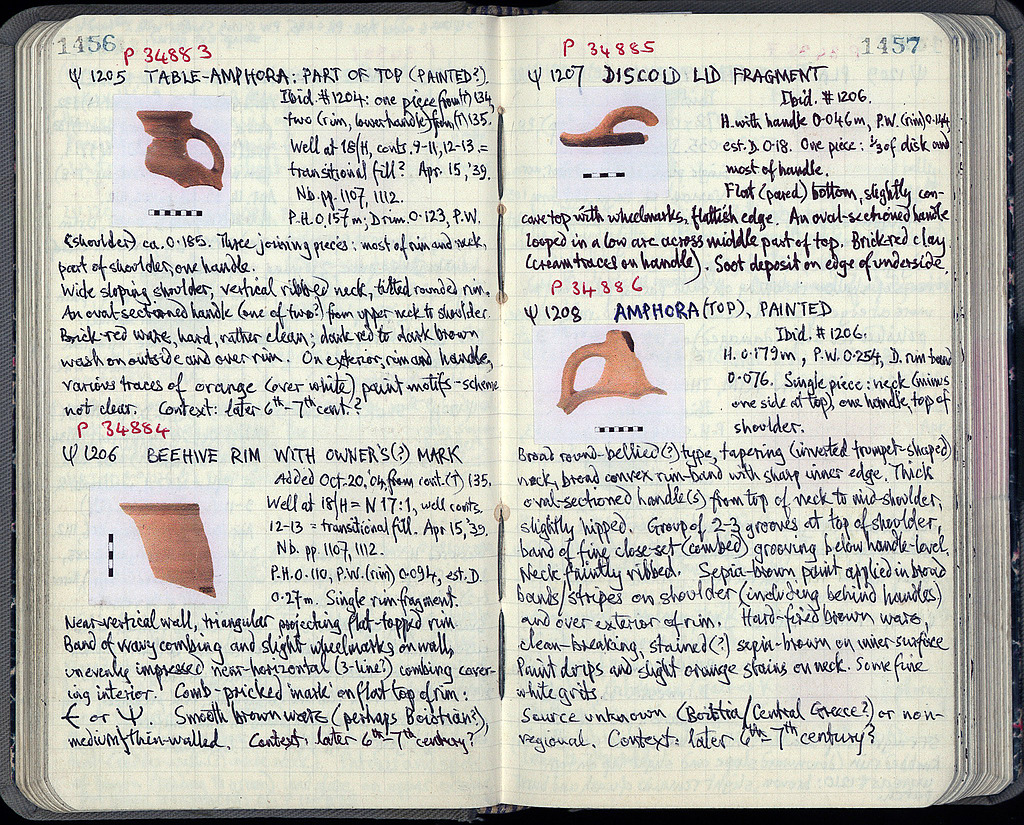 1456
P 34883
Ψ 1205 TABLE-AMPHORA: PART OF TOP (PAINTED?).
Ibid. #1204: one piece from (†) 134,
two (rim, lower handle) from (†) 135.
Well at 18/H, conts. 9-11, 12-13 =
transitional fill? Apr. 15, '39.
Nb. pp. 1107, 1112.
P.H. 0.157m, D. rim. 0.123, P.W.
(shoulder) ca. 0.185. Three joining pieces: most of rim and neck,
part of shoulder, one handle.
Wide sloping shoulder, vertical ribbed neck, tilted rounded rim.
An oval-sectioned handle (one of two?) from upper neck to shoulder.
Brick-red ware, hard, rather clean; dark red to dark brown
wash on outside and over rim. On exterior, rim and handle,
various traces of orange (over white) paint motifs - scheme
not clear. Context: later 6th-7th cent.?
P 34884
Ψ 1206 BEEHIVE RIM WITH OWNER'S(?) MARK
Added Oct. 20, '04, from cont. (†) 135.
Well at 18/H = N 17:1, well conts.
12-13 = transitional fill. Apr 15, '39.
Nb. pp. 1107, 1112.
P.H. 0.110, P.W. (rim) 0.094, est. D.
0.27m. Single rim fragment.
Near-vertical wall, triangular projecting flat-topped rim
Band of wavy combing and slight wheelmarks on wall,
unevenly impressed near-horizontal (3-line?) combing cover-
ing interior. Comb-pricked 'mark' on flat top of rim:
Є or Ψ. Smooth brown ware (perhaps Boiotian?),
medium/thin-walled. Context: later 6th-7th century?
1457
P 34885
Ψ 1207 DISCOID LID FRAGMENT
Ibid. #1206.
H. with handle 0.046m, P.W. (rim) 0.144
est. D. 0.18. One piece: 1/3 of disk and
most of handle.
Flat (pared) bottom, slightly con-
cave top with wheelmarks, flattish edge. An oval-sectioned handle
looped in a low arc across middle part of top. Brick-red clay
(cream traces on handle). Soot deposit on edge of underside.
P 34886
Ψ 1208 AMPHORA (TOP), PAINTED
Ibid. #1206.
H. 0.179m, P.W. 0.254, D. rim
0.076. Single piece: neck (minus
one side at top), one handle, top of
shoulder.
Broad round-bellied(?) type, tapering (inverted trumpet-shaped)
neck, broad convex rim-band with sharp inner edge. Thick
oval-sectioned handle(s) from top of neck to mid-shoulder,
slightly hipped. Group of 2-3 grooves at top of shoulder,
band of fine close-set (combed) grooving below handle-level.
Neck faintly ribbed. Sepia-brown paint applied in broad
bands/stripes on shoulder (including behind handles)
and over exterior of rim. Hard-fired brown ware,
clean-breaking, stained(?) sepia-brown on inner surface
Paint drips and slight orange stains on neck. Some fine
white grits.
Source unknown (Boiotia/Central Greece?) or non-
regional. Context: later 6th-7th century?